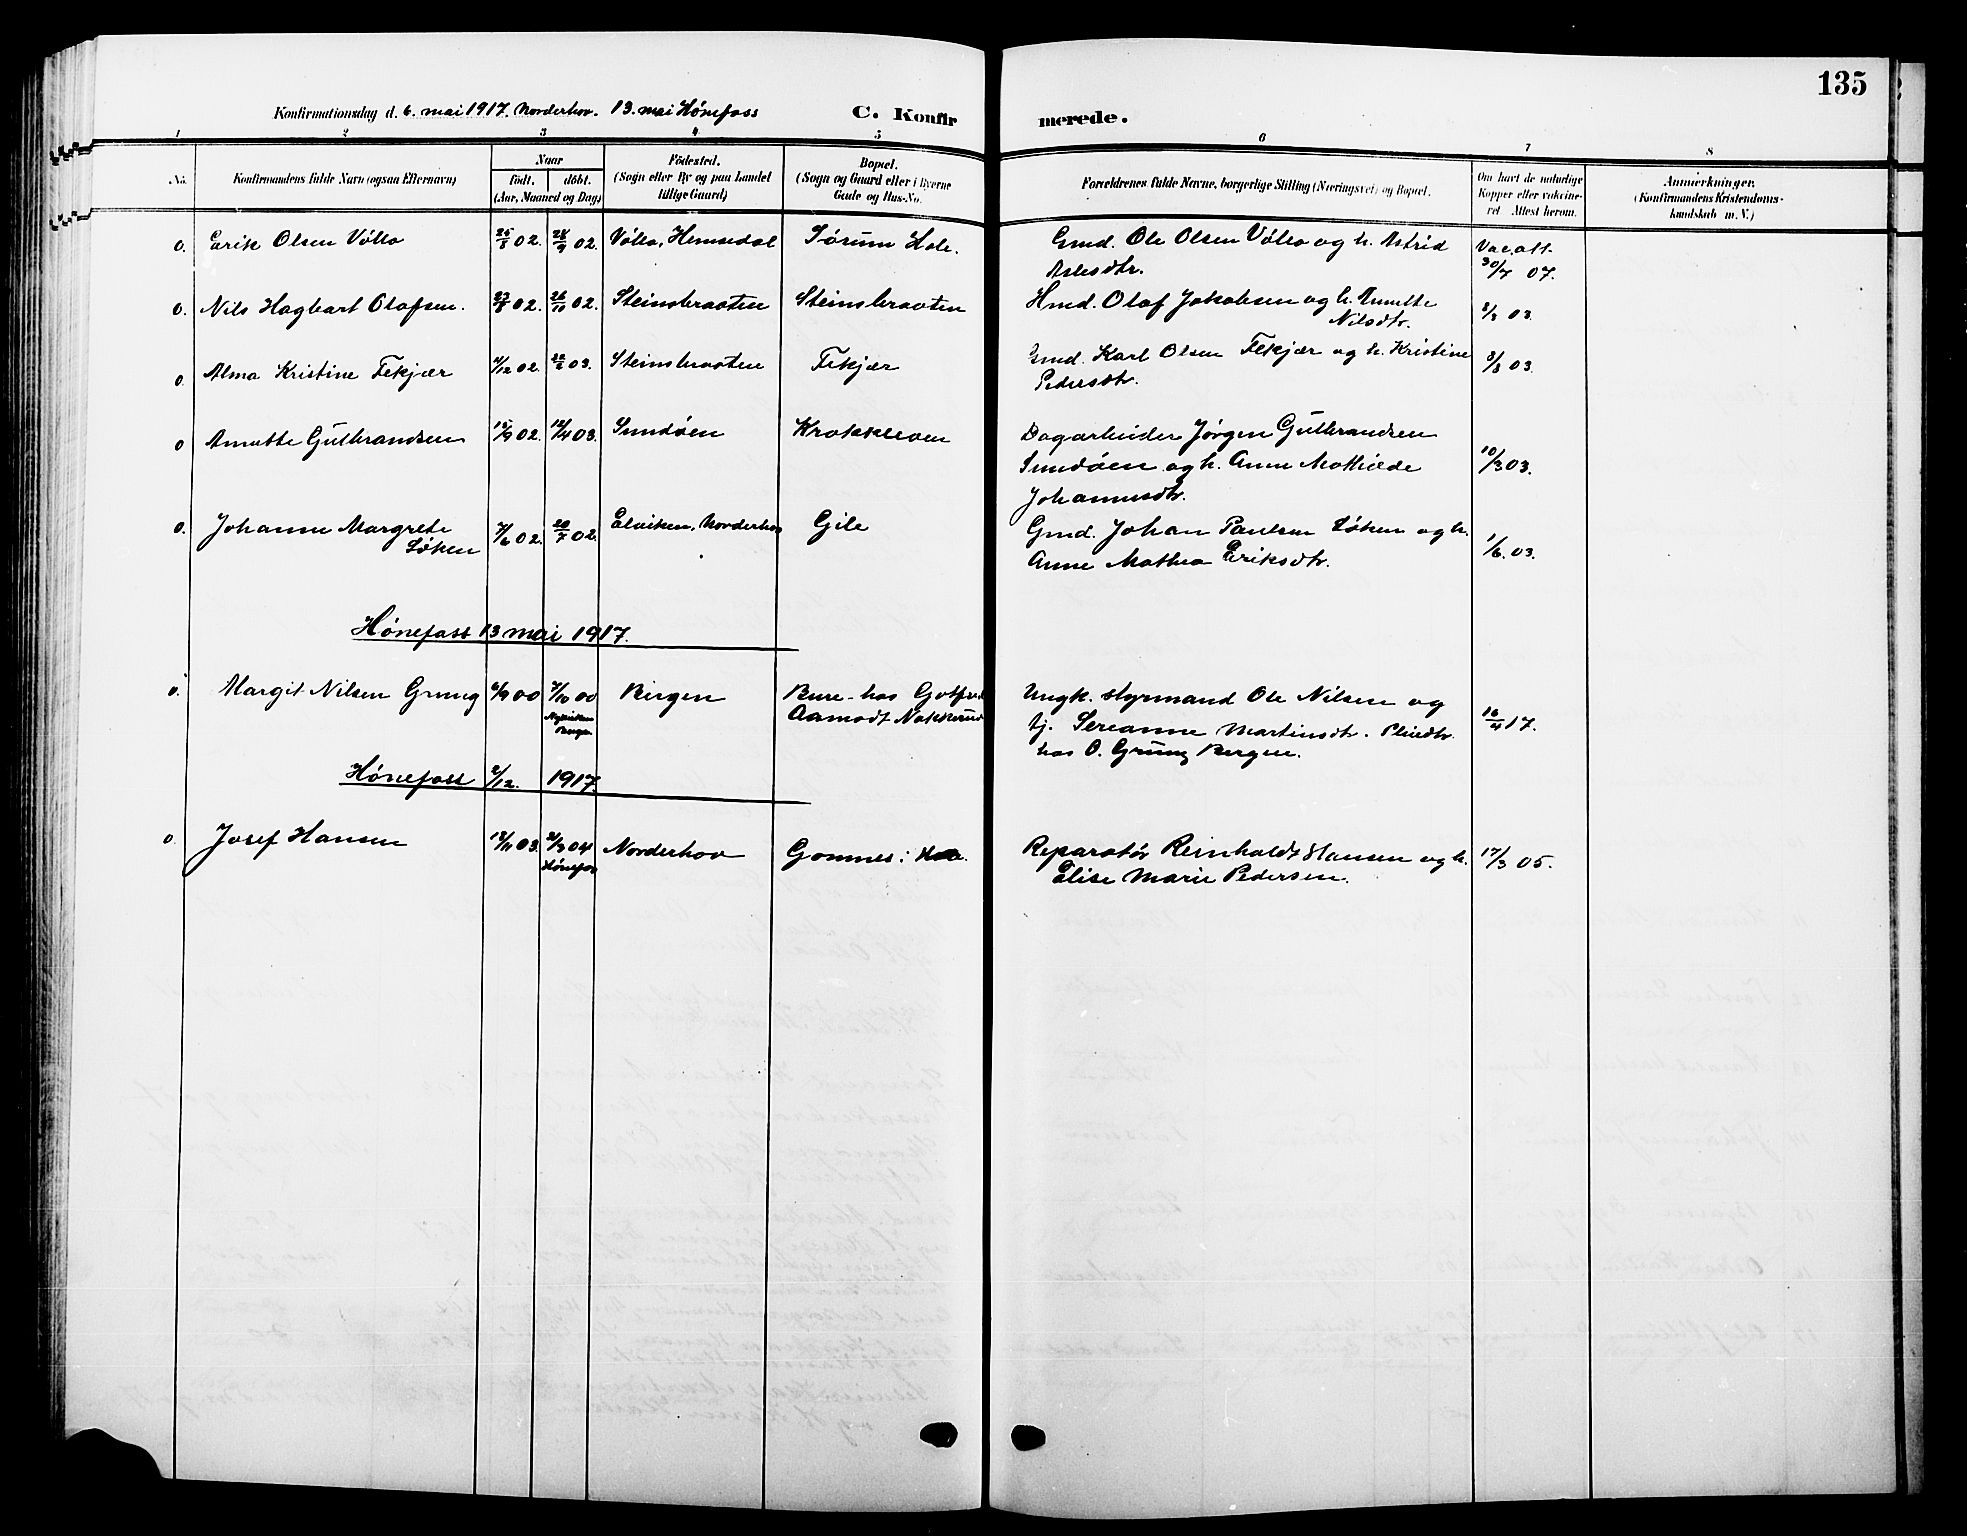 135
Konfirmationsdag d. 6. mai 1917. Norderhov. 13. mai Hønefoss C. Konfirmerede.
1 2 3 4 5 6 7 8
No. Konfirmandens fulde Navn (ogsaa Efternavn) Naar Födt. döbt. (Aar, Maaned og Dag) Födested. (Sogn eller By og paa Landet tillige Gaard) Bopæl. (Sogn og Gaard eller i Byerne Gade og Hus-No. Forældrenes fulde Navne, borgerlige Stilling (Næringsvei) og Bopæl. Om havt de naturlige Kopper eller vakcineret Attest herom. Anmærkninger. (Konfirmandens Kristendomskundskab m. V.)
0. Erik Olsen Vølla 02. 28/9 02. Vølla, Hemsedal Sørum Hole. Gmd. Ole Olsen Vølla og h. Astrid Vac. att.
Aslesdtr. 30/7 07.
0. Nils Hagbart Olafsen. 02. 26/10 02. Steinsbraaten Steinsbraaten Hmd. Olaf Jakobsen og h. Annette 03.
Nilsdtr.
0. Alma Kristine Fekjær /12 02. 22/2 03. Steinsbraaten Fekjær Gmd. Karl Olsen Fekjær og h. Kristine 03.
Pedersdtr.
0 Annette Gulbrandsen 15/9 02. 12/4 03. Sundøen Krokkleven Dagarbeider Jørgen Gulbrandsen
Sundøen og h. Anne Mathilde 10/3 03.
Johannesdtr.
0. Johanne Margrete 7/6 02. 20/7 02. Elviken, Norderhov Gile Gmd. Johan Paulsen Løken og h.
Løken Anne Mathea Eriksdtr. 1/6. 03.
Hønefoss 13 mai 1917.
0. Margit Nilsen Grung 6/9 00 7/10 00 Bergen Bure - hos Gotfred Ungk. styrmand Ole Nilsen og
Nykirken Bergen Aamodt Nakkerud tj. Sereanne Martinsdtr. 16/4 17.
hos O. Grung Bergen.
Hønefoss 2/12. 1917.
0. Josef Hansen 03. 04 Norderhov Gomnes i Hole. Reparatør Reinholdt Hansen og h. 17/3 05.
Hønefos Elise Marie Pedersen.